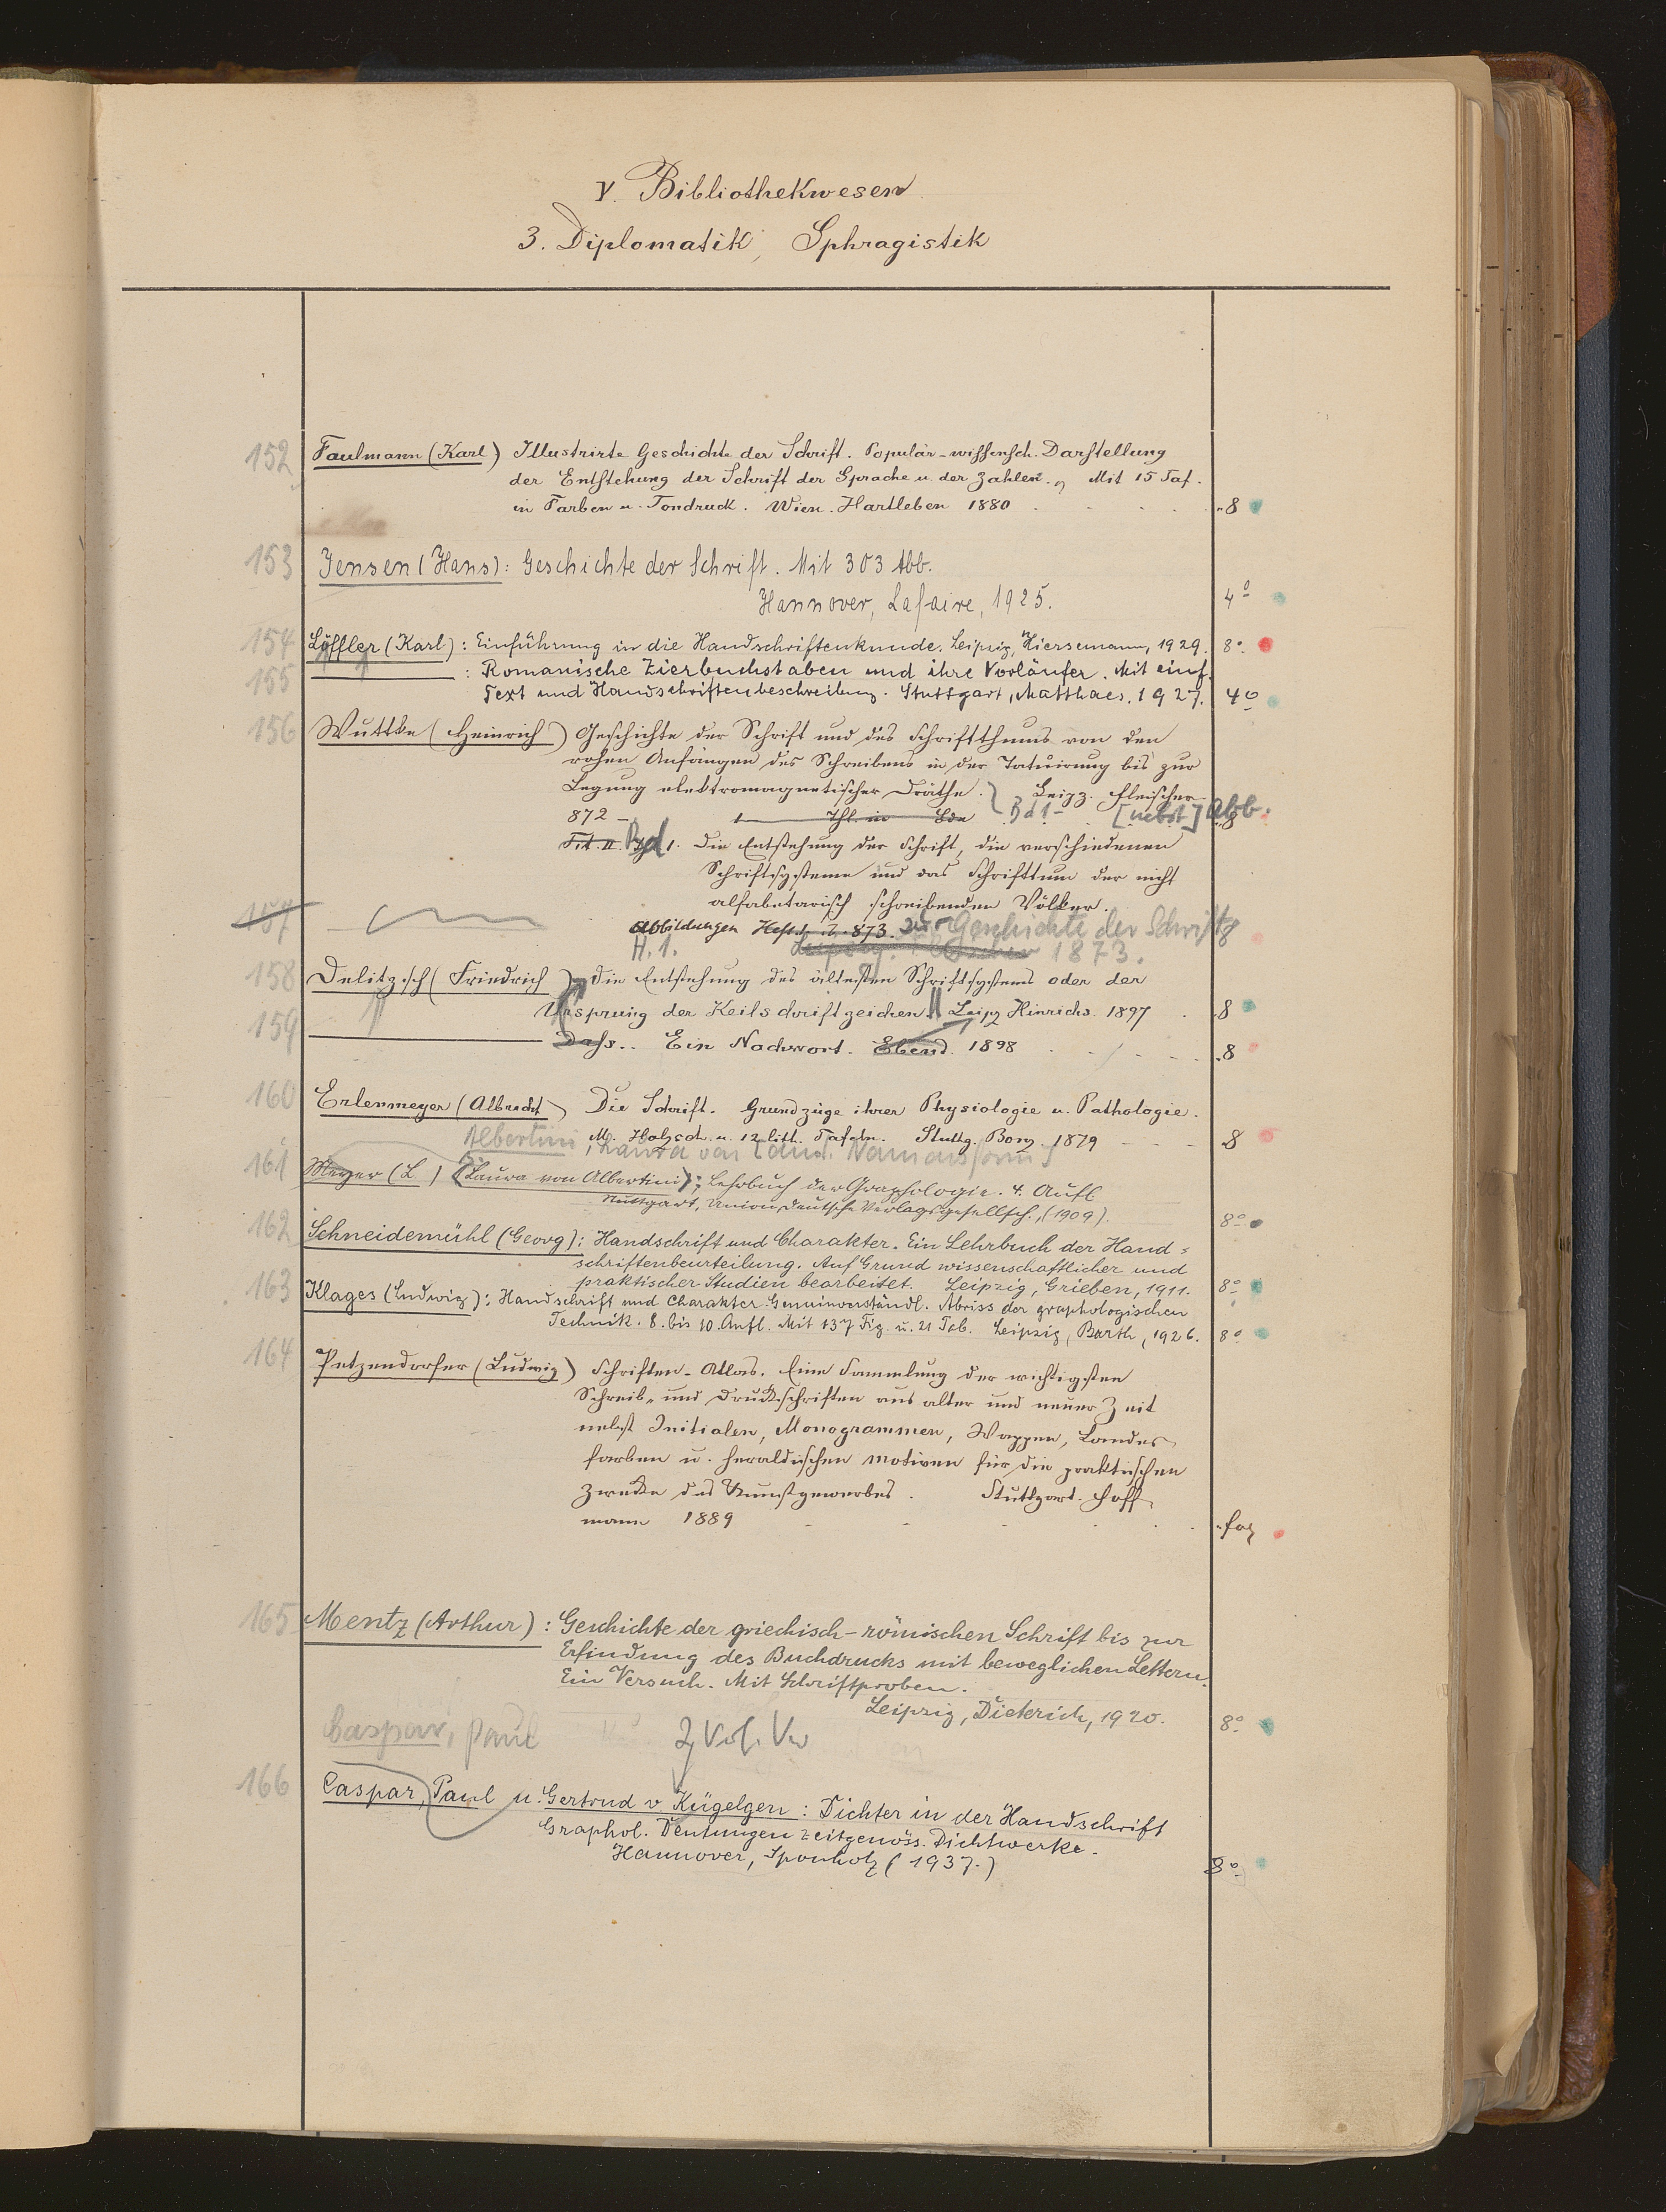 V. Bibliothekwesen
3. Diplomatik, Sphragistik
152 Faulmann (Karl) Illustrirte Geschichte der Schrift. Populär-wissensch. Darstellung
der Entstehung der Schrift der Sprache u. der Zahlen. Mit 15 Taf.
in Farben u. Tondruck. Wien. Hartleben 1880 8
153 Jensen (Hans): Geschichte der Schrift. Mit 303 Abb.
Hannover, Lafaire, 1925. 4°
154 Löffler (Karl): Einführung in die Handschriftenkunde. Leipzig, Hiersemann, 1929. 8°
155 : Romanische Zierbuchstaben und ihre Vorläufer. Mit einf.
Text und Handschriftenbeschreibung. Stuttgart, Matthaes. 1927. 4°
156 Wuttke (Heinrich) Geschichte der Schrift und des Schriftthums von den
rohen Anfängen des Schreibens in der Tatuirung bis zur
Legung elektromagnetischer Dräthe. Leipz. Fleischer
872 – 1 Thl. in Bde Bd 1 – [nebst] Abb. 8
Tit. II. Bd 1. Die Entstehung der Schrift, die verschiedenen
Schriftsysteme und das Schrifttum der nicht
alfabetarisch schreibenden Völker.
157 Abbildungen Heft 1. 873. zur Geschichte der Schrift 8
H. 1. 1873.
158 Delitzsch (Friedrich) Die Entstehung des ältesten Schriftsystems oder der
Ursprung der Keilschriftzeichen. Leipz Hinrichs. 1897 8
159 Dass.. Ein Nachwort. Ebend. 1898 8
160 Erlenmeyer (Albrecht) Die Schrift. Grundzüge ihrer Physiologie u. Pathologie.
M. Holzsch. u. 12 lith. Tafeln. Stuttg. Bonz. 1879 8
Albertini, Laura von
161 Meyer (L.) (Laura von Albertini); Lehrbuch der Graphologie. 4. Aufl
Stuttgart, Union Deutsche Verlagsgesellsch., (1909). 8°
162 Schneidemühl (Georg): Handschrift und Charakter. Ein Lehrbuch der Hand=
schriftenbeurteilung. Auf Grund wissenschaftlicher und
praktischer Studien bearbeitet. Leipzig, Grieben, 1911. 8°
163 Klages (Ludwig): Handschrift und Charakter. Gemeinverständl. Abriss der graphologischen
Technik. 8. bis 10. Aufl. Mit 137 Fig. u. 21 Tab. Leipzig, Barth, 1926. 8°
164 Petzendorfer (Ludwig) Schriften-Atlas. Eine Sammlung der wichtigsten
Schreib- und Druckschriften aus alter und neuer Zeit
nebst Initialen, Monogrammen, Wappen, Landes
farben u. heraldischen Motiven für die praktischen
Zwecke des Kunstgewerbes. Stuttgart. Hoff
mann 1889 fol
165 Mentz (Arthur): Geschichte der griechisch-römischen Schrift bis zur
Erfindung des Buchdrucks mit beweglichen Lettern.
Ein Versuch. Mit Schriftproben.
Leipzig, Dieterich, 1920. 8°
Caspar, Paul
166 Caspar, Paul u. Gertrud v. Kügelgen: Dichter in der Handschrift
Graphol. Deutungen zeitgenöss. Dichtwerke.
Hannover, Sponholtz (1937.) 8°